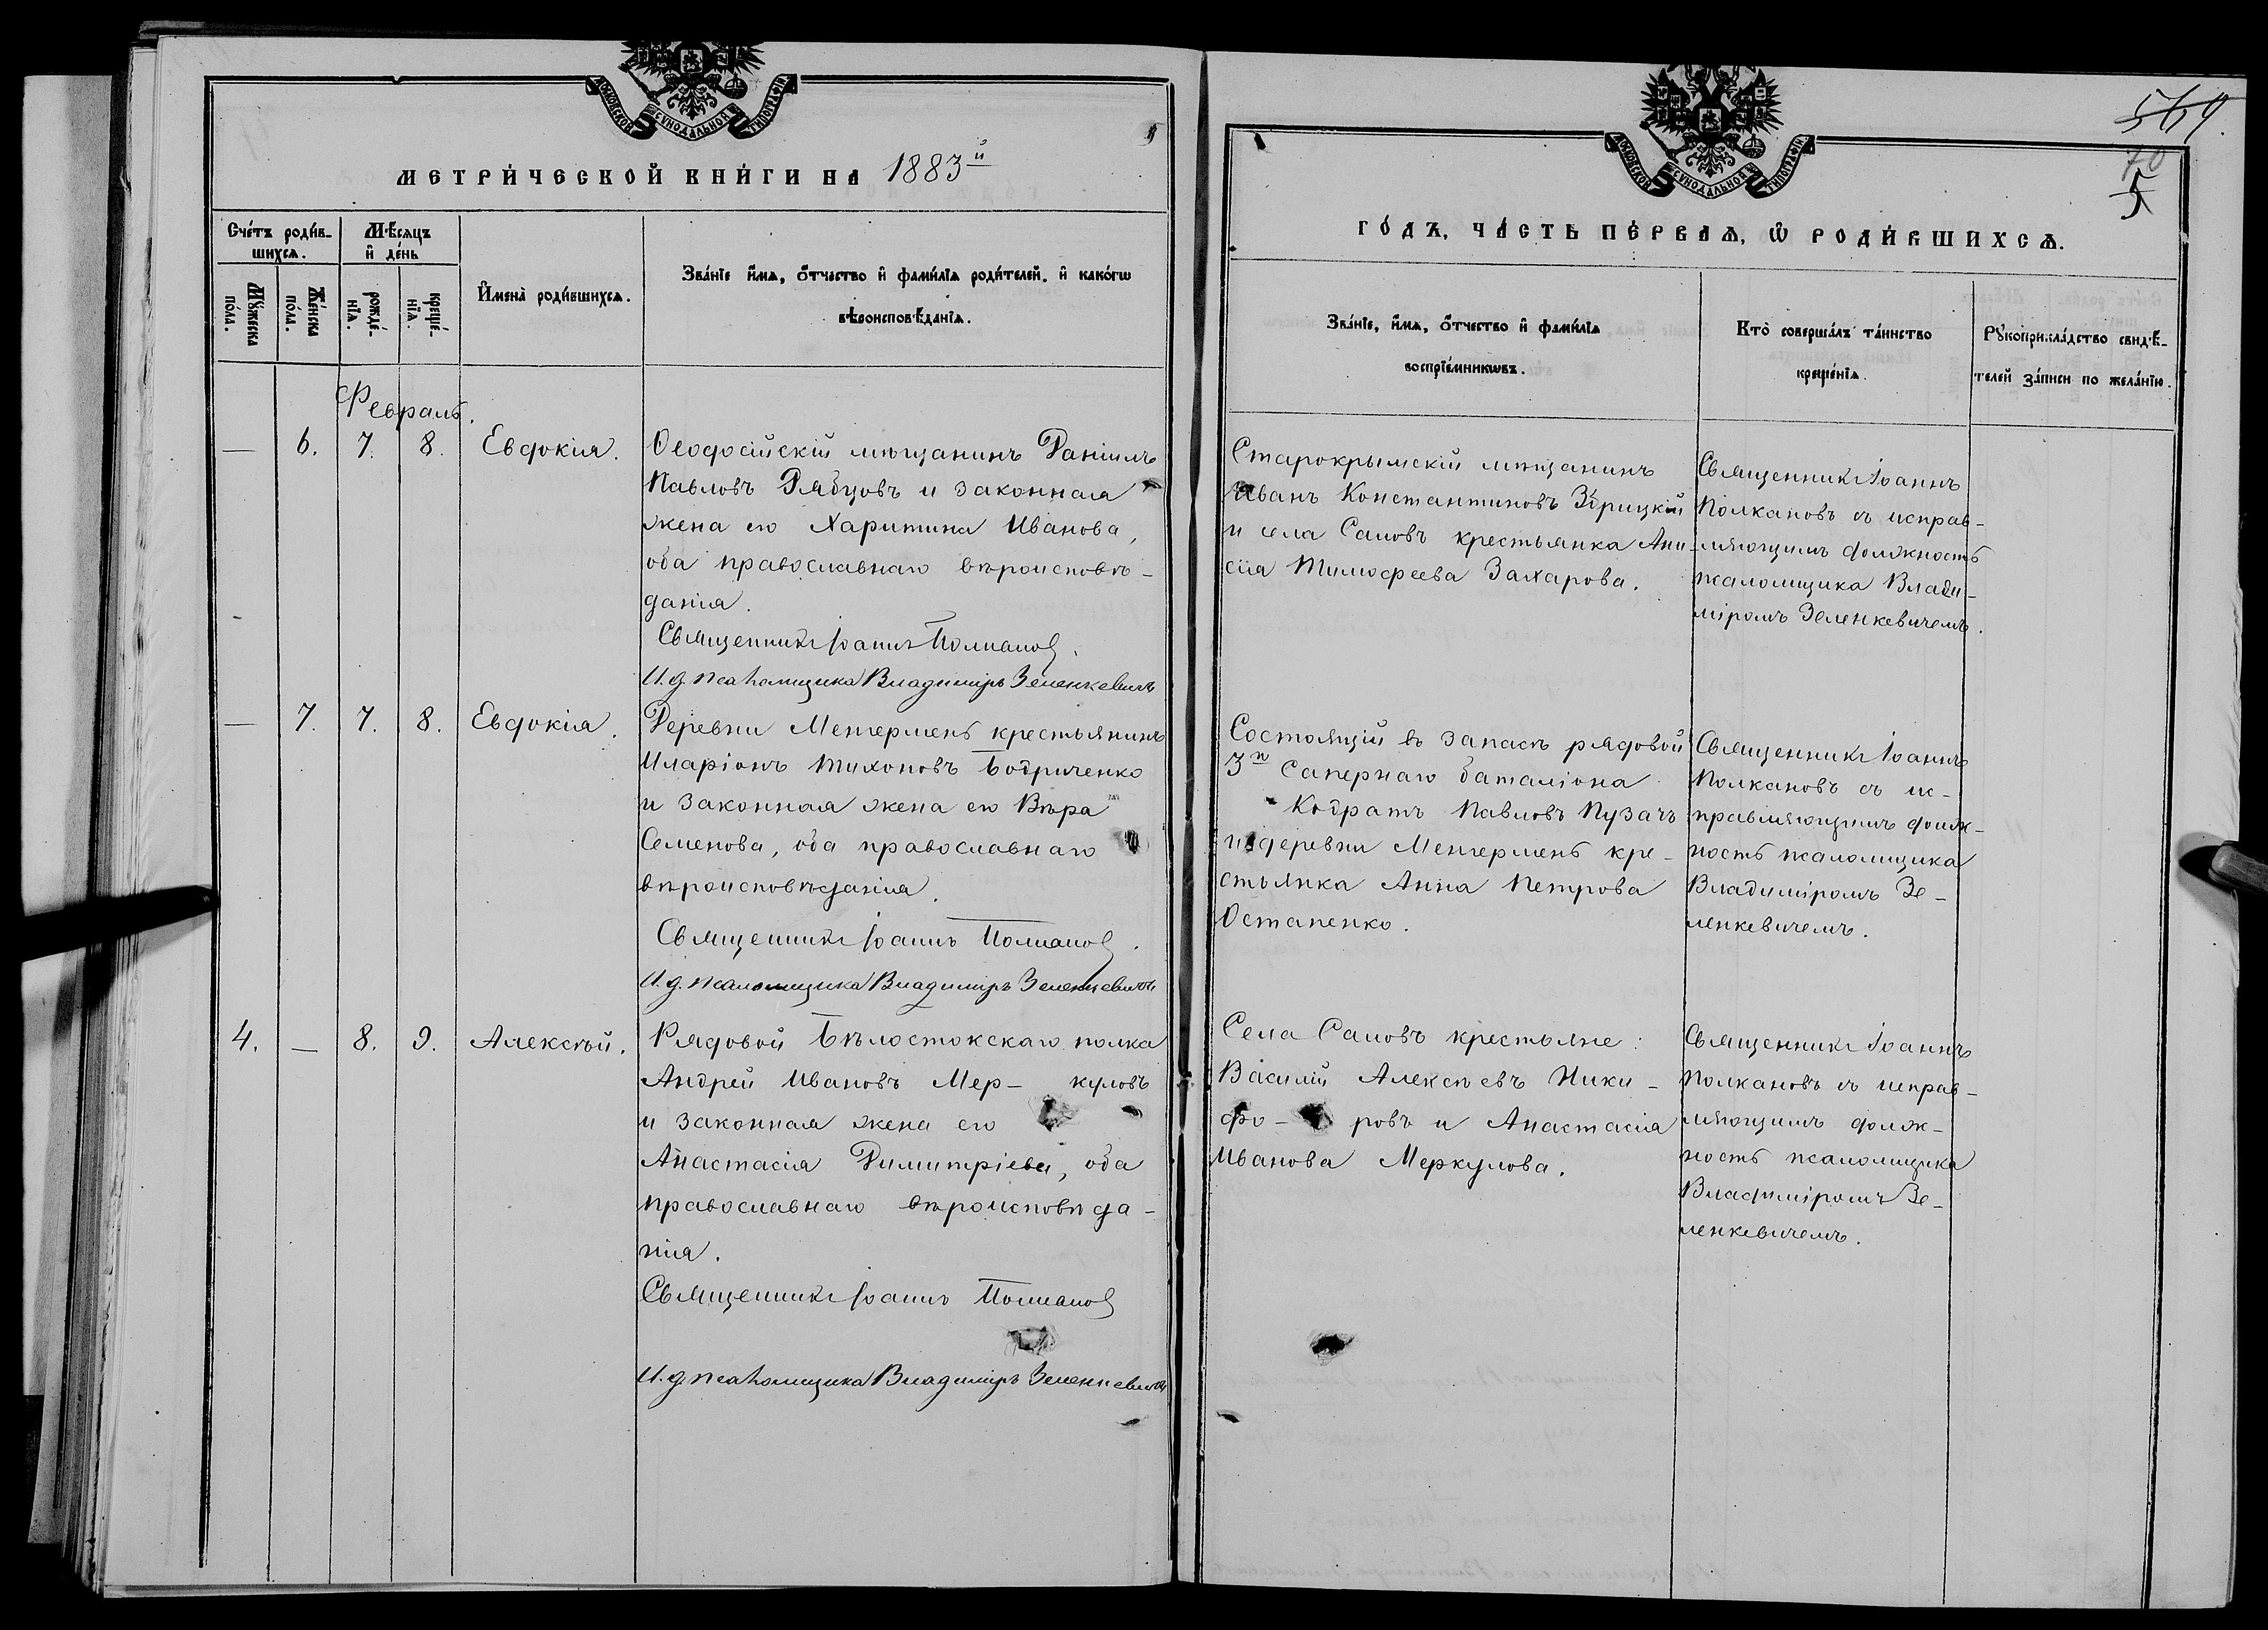 МОСКОВСКОЙ СѴНОДАЛЬНОЙ ТИПОГРАФІИ
МЕТРИ́ЧЕСКОЙ КНИ́ГИ НА 1883й
Сче́тъ роди́в-
шихсѧ.
Мѣ́сѧцъ
и҆ де́нь
Мꙋ́жеска
по́ла.
Же́нска
по́ла.
рожде́-
нїѧ.
креще́-
нїѧ.
И҆мена̀ роди́вшихсѧ.
Зва́нїе и҆́мѧ, ѻ҆́тчество и҆ фами́лїѧ роди́телей. и҆ како́гѡ
вѣроисповѣ́данїѧ.
Февраль.
— 6. 7. 8. Евдокія.
Ѳеодосійскій мѣщанинъ Даніилъ
Павловъ Рябцовъ и законная
жена его Харитина Иванова,
оба православнаго вѣроисповѣ-
данія.
Священникъ Іоаннъ Полкановъ.
И. д. псаломщика Владиміръ Зеленкевичъ
— 7. 7. 8. Евдокія.
Деревни Менгерменъ крестьянинъ
Иларіонъ Тихоновъ Бодриченко
и законная жена его Вѣра
Семенова, оба православнаго
вѣроисповѣданія.
Священникъ Іоаннъ Полкановъ.
И. д. псаломщика Владиміръ Зеленкевичъ
4. — 8. 9. Алексѣй.
Рядовой Бѣлостокскаго полка
Андрей Ивановъ Мер- куловъ
и законная жена его
Анастасія Димитріева, оба
православнаго вѣроисповѣда-
нія.
Священникъ Іоаннъ Полкановъ
И. д. псаломщика Владиміръ Зеленкевичъ
МОСКОВСКОЙ СѴНОДАЛЬНОЙ ТИПОГРАФІИ
569.
70
5
ГО́ДЪ, ЧА́СТЬ ПЕ́РВАѦ, Ѡ҆ РОДИ́ВШИХСѦ.
Зва́нїе, и҆́мѧ, ѻ҆́тчество и҆ фами́лїѧ
воспрїе́мникѡвъ.
Кто̀ соверша́лъ та́инство
креще́нїѧ.
Рꙋкоприкла́дство свидѣ́-
телей за́писи по жела́нїю.
Старокрымскій мѣщанинъ
Иванъ Константиновъ Збрицкій
и села Саловъ крестьянка Ани-
сія Тимофеева Захарова.
Священникъ Іоаннъ
Полкановъ съ исправ-
ляющимъ должность
псаломщика Влади-
міромъ Зеленкевичемъ.
Состоящій въ запасѣ рядовой
3го Сапернаго баталіона
Кодратъ Павловъ Пузачъ
и деревни Менгерменъ кре-
стьянка Анна Петрова
Остапенко.
Священникъ Іоаннъ
Полкановъ съ ис-
правляющимъ долж-
ность псаломщика
Владиміромъ Зе-
ленкевичемъ.
Села Саловъ крестьяне:
Василій Алексѣевъ Ники-
фо- ровъ и Анастасія
Иванова Меркулова.
Священникъ Іоаннъ
Полкановъ съ исправ-
ляющимъ долж-
ность псаломщика
Владиміромъ Зе-
ленкевичемъ.